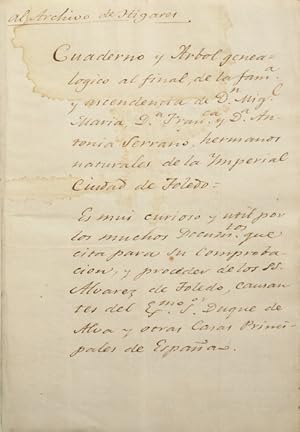 al Archivo de Higares
Cuaderno y Arbol genea-
logico al final, de la fam.a
y ascendencia de D.n Mig.l
Maria, D.a Fran.ca y D.a An-
tonia Serrano, hermanos
naturales de la Ymperial
Ciudad de Toledo=
Es mui curioso y util por
los muchos Docum.tos que
cita para su Comproba-
cion, y proceder de los SS.
Alvarez de Toledo, causan-
tes del Ex.mo S.or Duque de
Alva y otras Casas Princi-
pales de España.